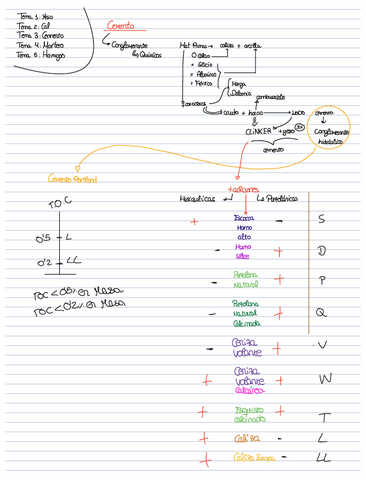 Tema 1: Yeso
Tema 2: Cal
Tema 3: Cemento
Tema 4: Mortero
Tema 5: Hormigón
Cemento
Conglomerante
Químicos
Mat Primas → caliza + arcilla
Calcio
Silicio
Aluminio
Férrico
Marga
Dolomía
combustible
crudo + horno → 2000
CLÍNCER + yeso
cemento
cemento
Conglomerante
hidráulico
Cemento Portland
+ adiciones
Hidráulicas
Puzolánicas
T.O.C
0'5 L
0'2 LL
TOC < 0'5% en Masa
TOC < 0'2% en Masa
+ Escoria - S
Horno
alto
- Humo + D
Sílice
- Puzolana + P
Natural
- Puzolana + Q
Natural
Calcinada
- Ceniza + V
Volante
+ Ceniza + W
Volante
Calcárea
+ Esquisto + T
calcinado
+ Caliza - L
+ Caliza - LL